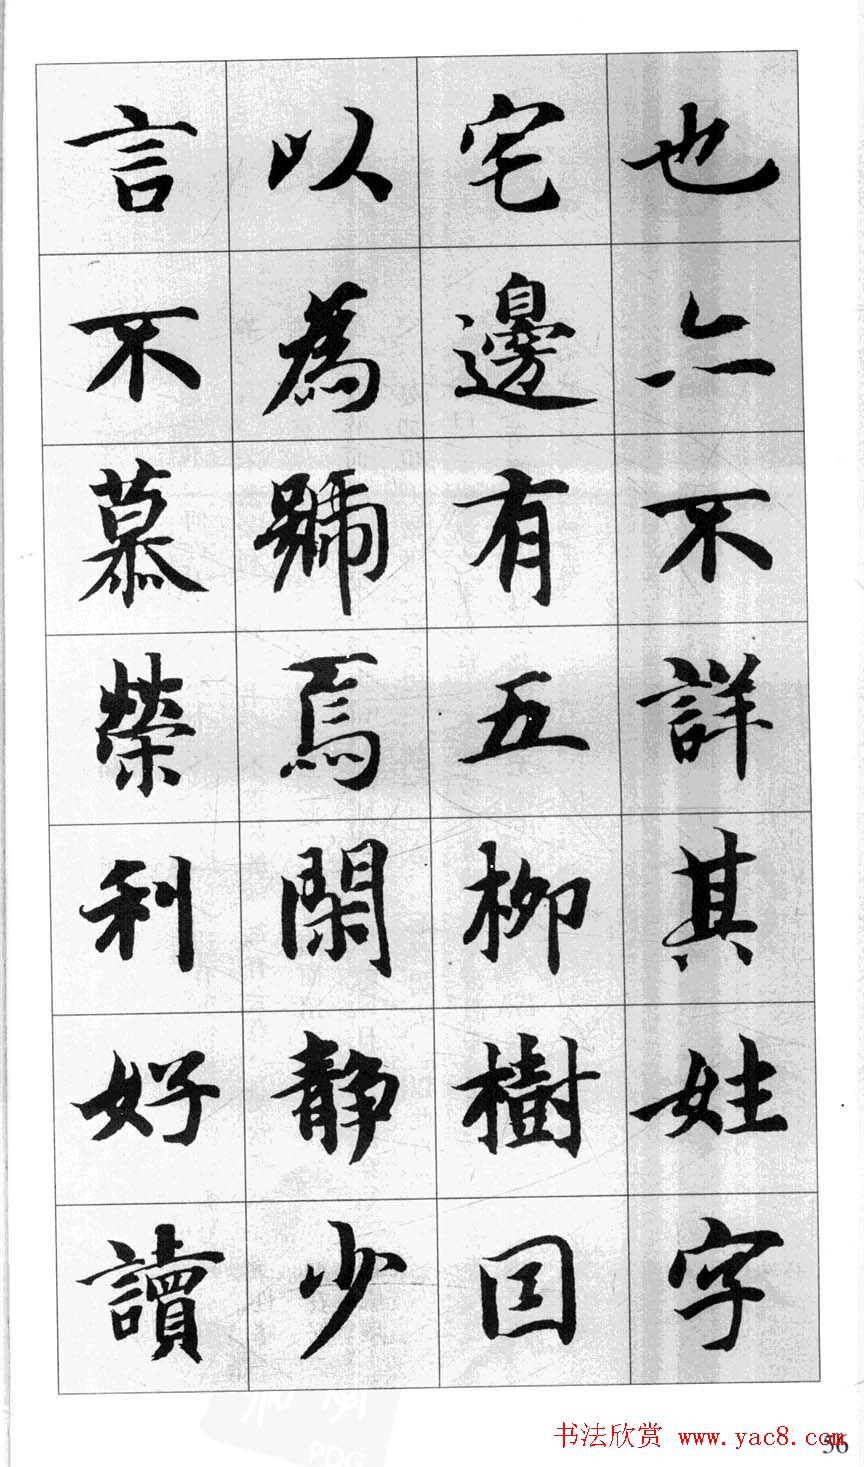 也亦不詳其姓字
宅邊有五柳樹囙
以為號焉閑静少
言不慕榮利好讀
书法欣赏 www.yac8.com
56
PDG